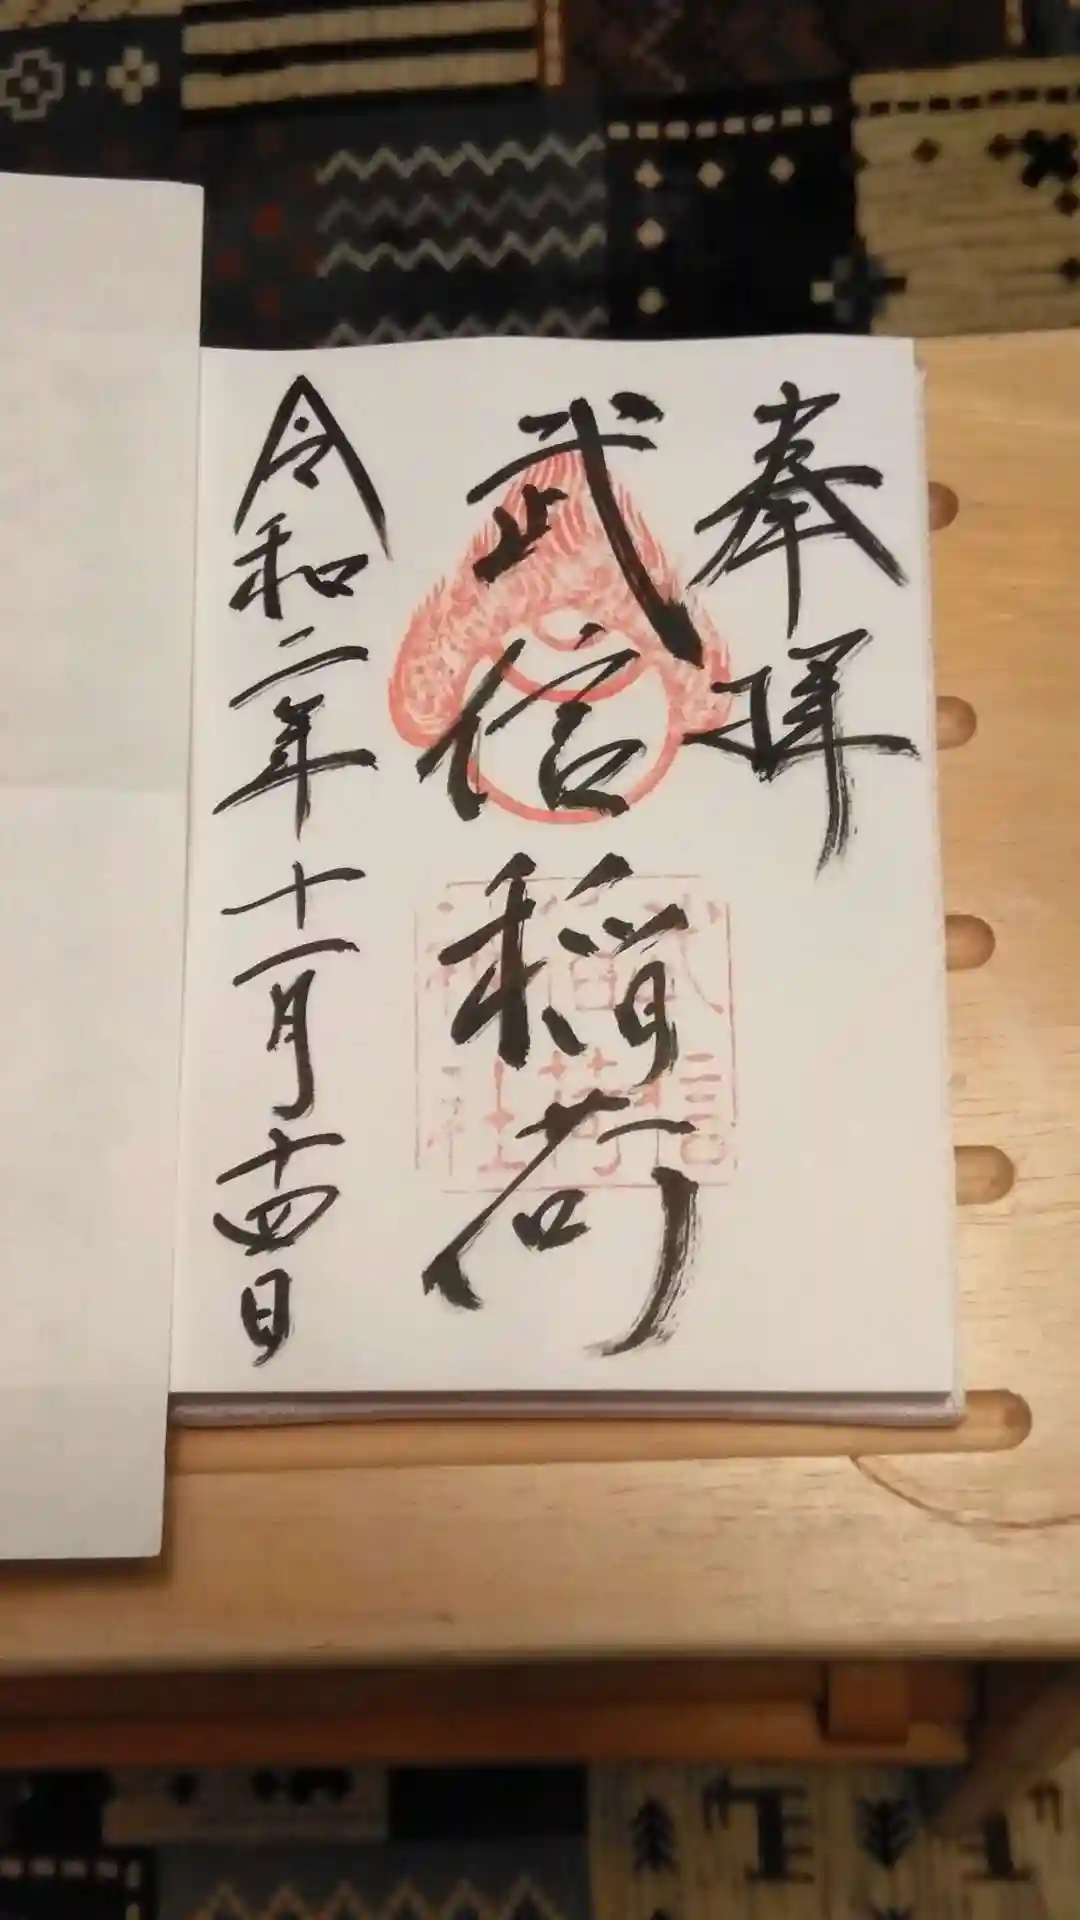 奉拝
武信稲荷
武信
稲荷
神社
令和二年十一月十四日